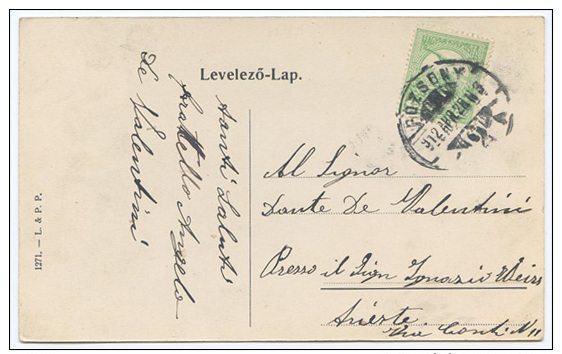 Levelező-Lap.
MAGYAR KIR. POSTA
POZSONY
912
Tanti Saluti
fratello Angelo
De Valentini
Al Signor
Dante De Valentini
Presso il Sign Ignazio Weiss
Trieste
Via Conti N 11
1271. — L. & P. P.